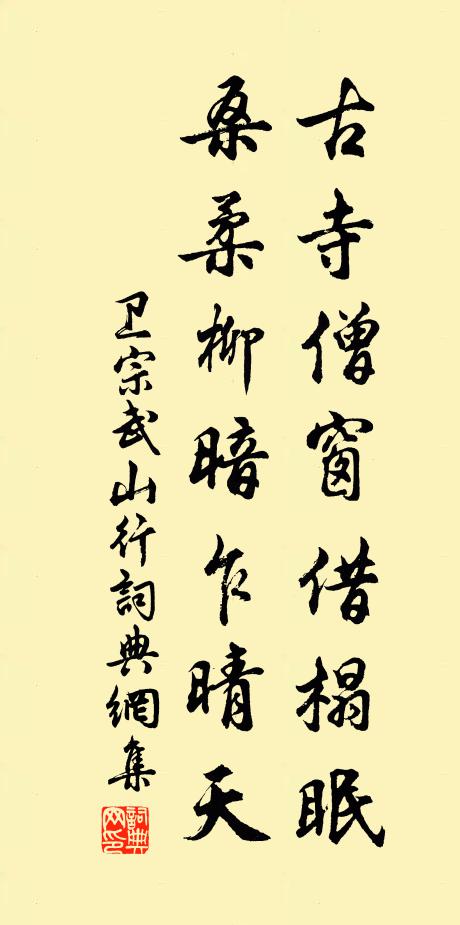 古寺僧窗借榻眠
桑柔柳暗乍晴天
卫宗武山行詞典網集
詞典网印